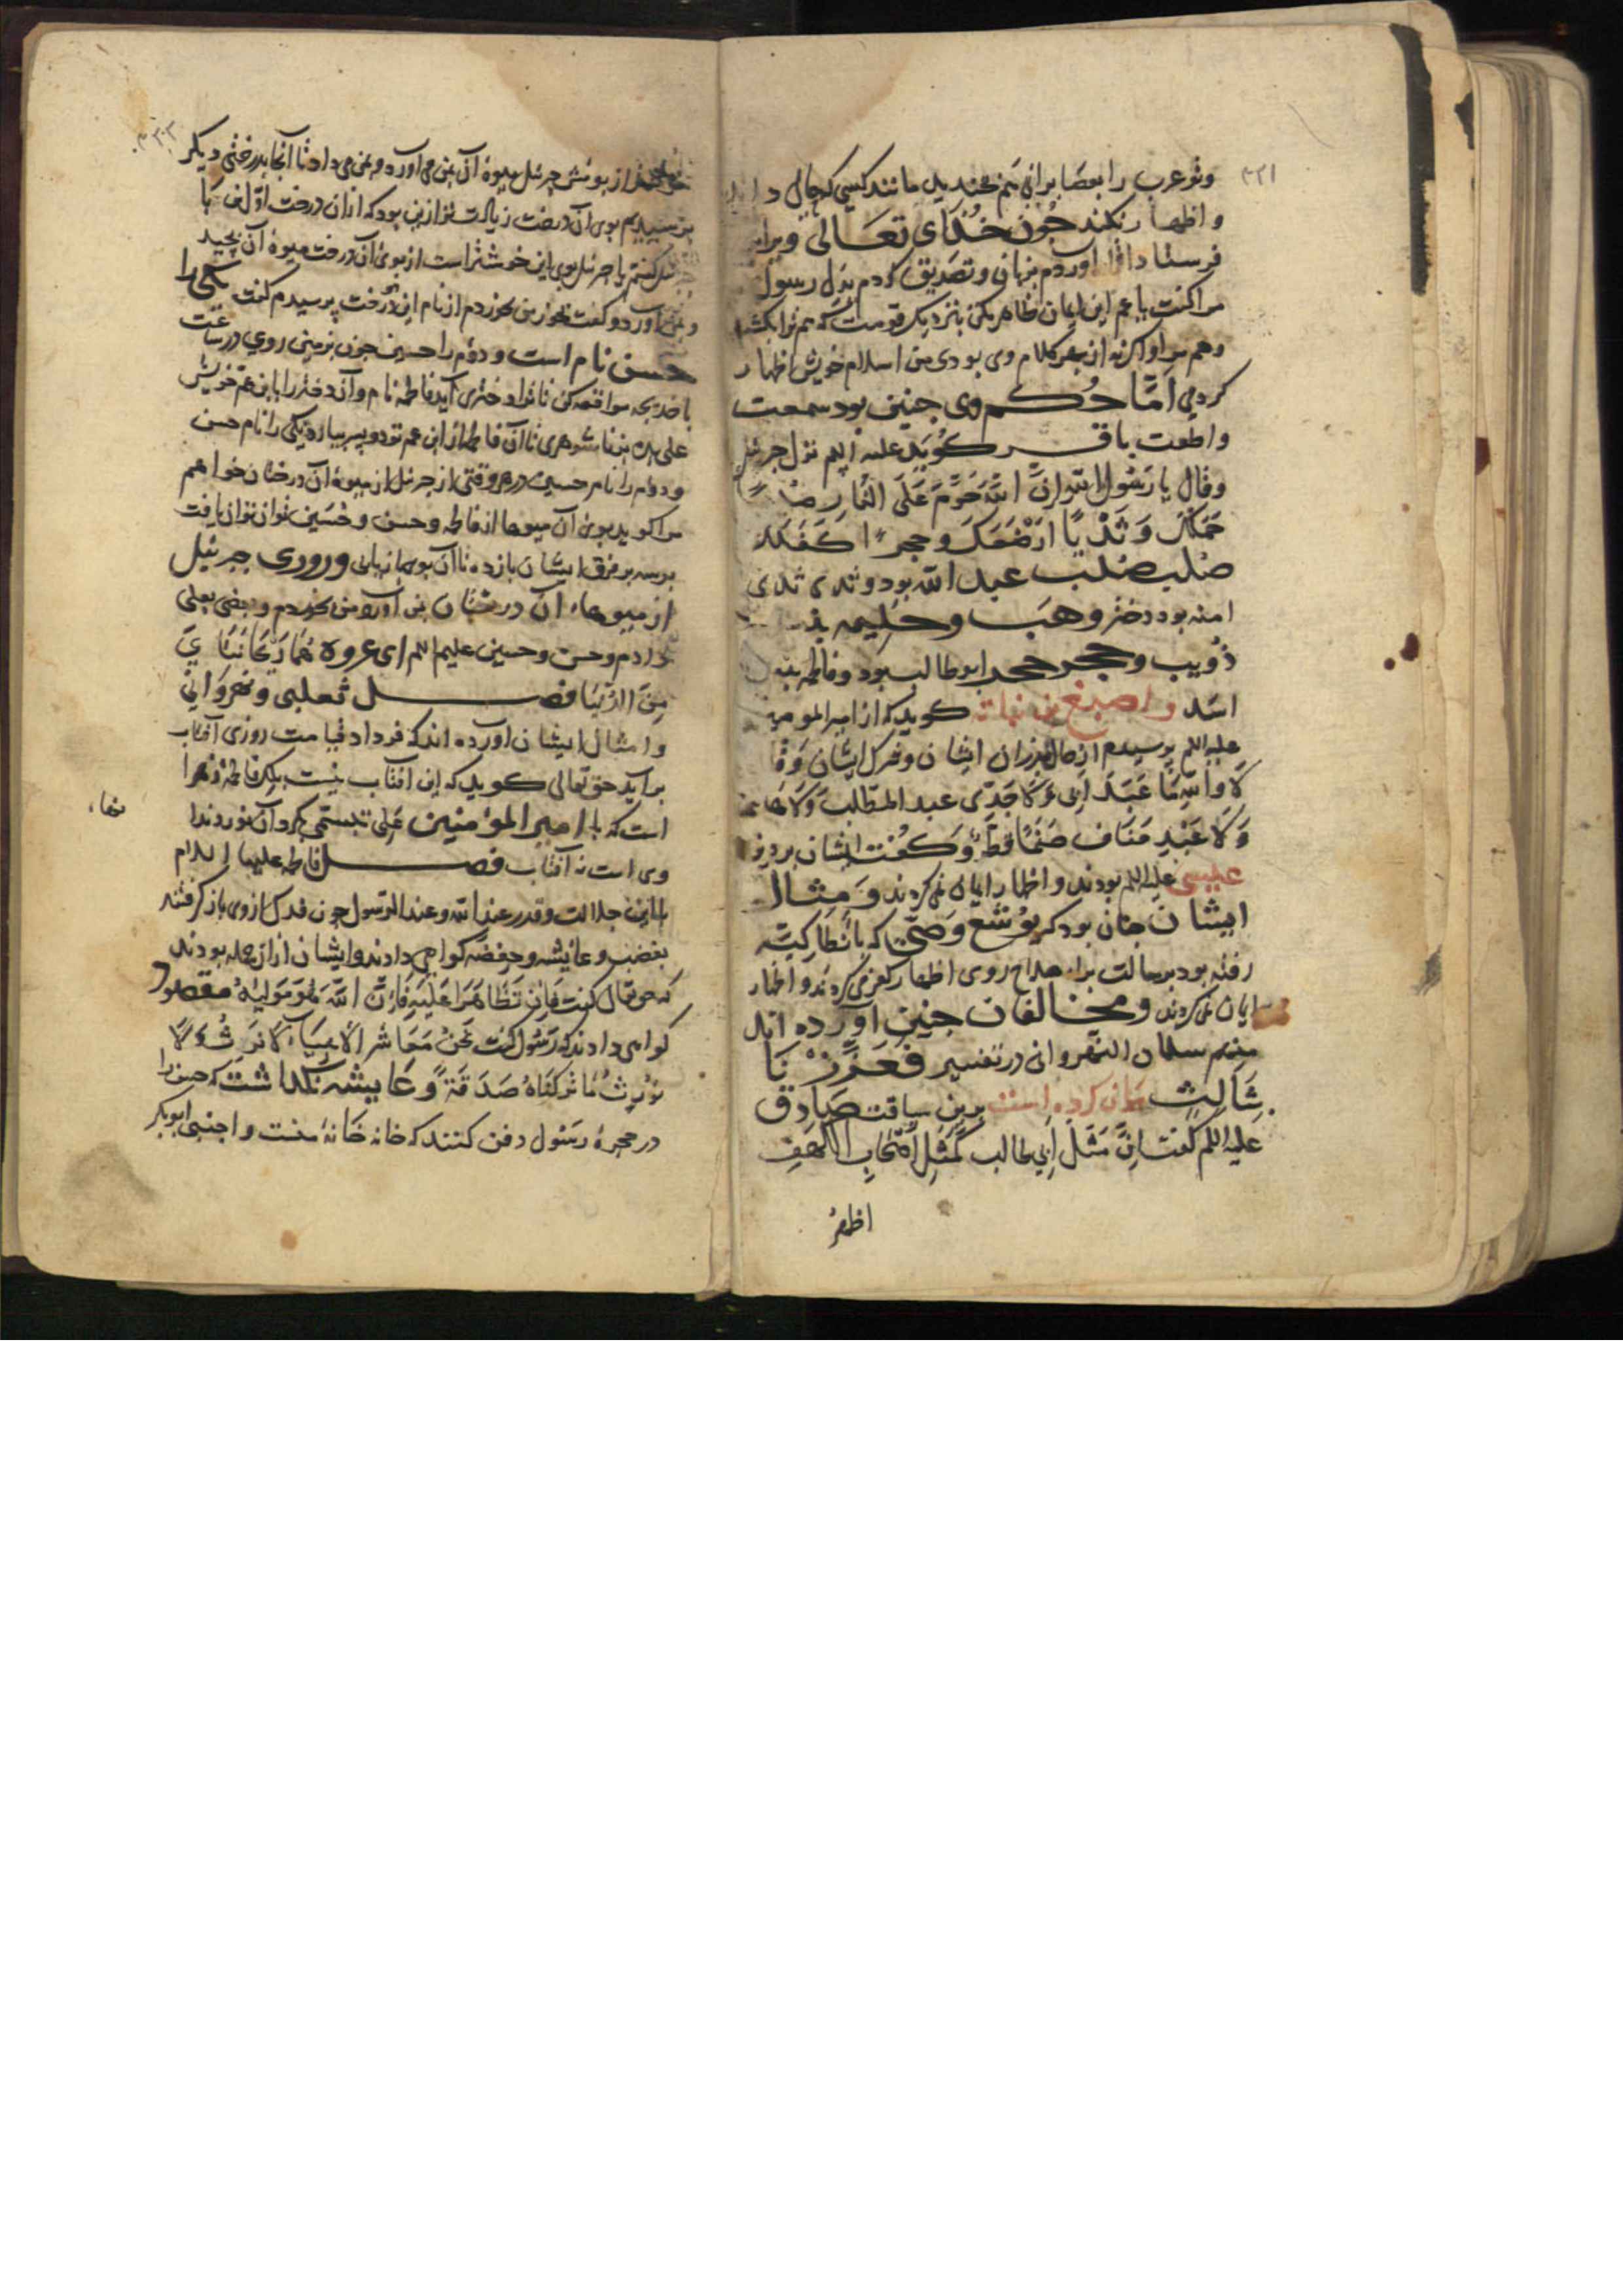 و تو عرب را بعصا برانی نمی‌خندید مانند کسی که جمال دا
و اظهار نکند جون خدای تعالی ویرا
فرستاد اقرا اوردم بزبان و تصدیق کردم بدل رسول
مرا کفت یا عم این ایمان ظاهر مکن بنزدیک قومت که هم ترا بکشند
و هم مرا و اکر نه از بهر کلام وی بودی من اسلام خویش اظهار
کردمی امّا حُکم وی جنین بود سمعت
و اطعت باقر کُوید علیه السلم نزل جبرئیل
وقال یا رَسُول الله انَّ اللّهَ حَرَّمَ عَلَی النَّار صُلْبًا
حَمَلَکَ وَثَدْیًا ارْضَعَکَ وحجرًا کَفَلَکَ
صُلب صُلب عبد الله بود و ثدی ثدی
امنه بود دختر وهَب و حلیمه بنت
ذُویب و حجر حجر ابو طالب بود و فاطمه بنت
اسَد و اصبغ بن نباته کوید که از امیر المومنین
علیه السلم پرسیدم از حال پدران ایشان و شرک ایشان وَقا
لا واللهِ مَا عَبَدَ اَبِی وَ لَا جَدِّی عبد المطّلب وَلَا هاشم
وَلَا عَبْدِ مَنَاف صَنَمًا قَطُّ وَ کفت ایشان بر دین
عیسی علیه السلم بودند و اظهار ایمان نمی‌کردند وَ مِثال
ایشان جنان بود که یُوشَع وَصیّ که بأَنطاکیَّه
رفته بود برسالت براء صلاح روی اظهار کفر می‌کردند و اظهار
ایمان نمی‌کردند و مخالفان جنین آورده اند
منهم سلمان النهروانی در تفسیر فَعَزَّزْنَا
بِثَالِثٍ بیان کرده است برین سیاقت صَادق
علیه السلم کفت اِنَّ مَثَلَ اَبِی طالب کَمَثَلِ اَصْحَابِ الْکَهْفِ
اظهر
از بویش جبرئیل میوهٔ آن بمن می‌اورد و بمن می داد تا آنجا بدرختی دیکر
برسیدیم بوی آن درخت زیادت تر ازین بود که از ان درخت اوّل
کفتم یا جبرئیل بوی این خوشتر است از بوی آن درخت میوهٔ آن بچید
و بمن آورد و کفت بخور من بخوردم از نام این درخت پرسیدم کفت یکی را
حسن نام است و دوم را حسین جون بزمین روی در ساعت
با خدیجه مواقعه کن تا ترا دختری آید فاطمه نام و آن دختر را بابن عم خویش
علی ده بزناشوهری تا آن فاطمه از ابن عم تو دو پسر بیارد یکی را نام حسن
و دوم را نام حسین در هر وقتی از جبرئیل از میوهٔ آن درختان خواهم
مرا کوید بوی آن میوها از فاطمه و حسن و حُسَین توان یافت
بوسه بر فرق ایشان بازده تا آن بوی بازیابی و روزی جبرئیل
از میوهاء آن درختان بمن آورد من بخوردم و بعضی بعلی
دادم و حسن و حسین علیهم السلم ای عروه هُمَا رَیْحَانَتَایَ
مِنَ الدُّنْیَا فصل ثعلبی و نهروانی
و امثال ایشان اورده اند که فردا قیامت روزی آفتاب
بر آید حق تعالی کوید که این آفتاب نیست بلکه فاطمهٔ زهرا
است که با امیر المؤمنین عَلی تبسّمی بکرد آن نور دندا
نها،
وی است نه آفتاب فصل فاطمه علیها السلام
با این جلالت و قدر عند الله و عند الرسول جون فدک از وی باز کرفتند
بغضب و عایشه و حفصه کواهی دادند و ایشان از ان جمله بودند
که حق تعالی کفت فَاِن تَظَاهَرَا عَلَیْهِ فَاِنَّ اللّهَ هُوَ مَوْلَیهُ
کواهی دادند که رَسُول کفت نَحْنُ مَعَاشِرَ الاَنْبِیَاءِ لَا نَرِثُ وَلَا
نُوْرِثُ مَا تَرَکْنَاهُ صَدَقَةً وَ عَایشه نکذاشت که حسن را
در حجرهٔ رَسُول دفن کنند که خانه خانهٔ منست و اجنبی ابو بکر